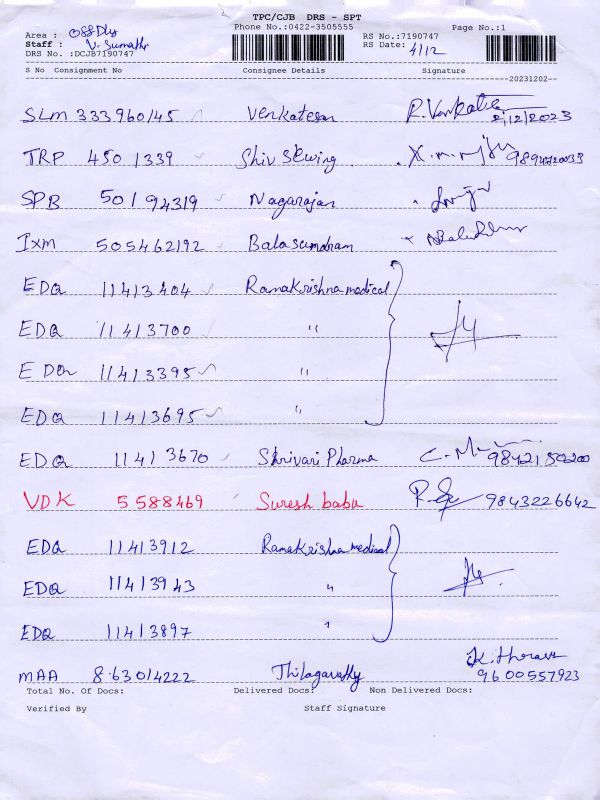 TPC/CJB DRS - SPT
Phone No.:0422-3505555
RS No.:7190747
Page No.:1
Area : Off Dly
Staff : V. Sumathi
RS Date: 4/12
DRS No. :DCJB7190747
S No Consignment No Consignee Details Signature
20231202--
SLM 333960145 Venkatesan R. Venkatesa
2/12/2023
TRP 4501339 Shiv Sewing
SPB 50194319 Nagarajan
Ixm 505462192 Balasundram
EDQ 11413404 Ramakrishna medical
EDQ 11413700 "
EDQ 11413395 "
EDQ 11413695 "
EDQ 11413670 Shrivari Pharma
VDK 5588469 Suresh babu 9843226642
EDQ 11413912 Ramakrishna medical
EDQ 11413943 "
EDQ 11413897 "
MAA 863014222 Thilagavathy
9600557923
Total No. Of Docs: Delivered Docs: Non Delivered Docs:
Verified By Staff Signature